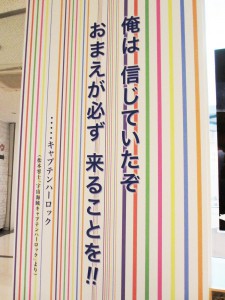 俺は 信じていたぞ
おまえが必ず 来ることを!!
……キャプテンハーロック
(松本零士「宇宙海賊キャプテンハーロック」より)